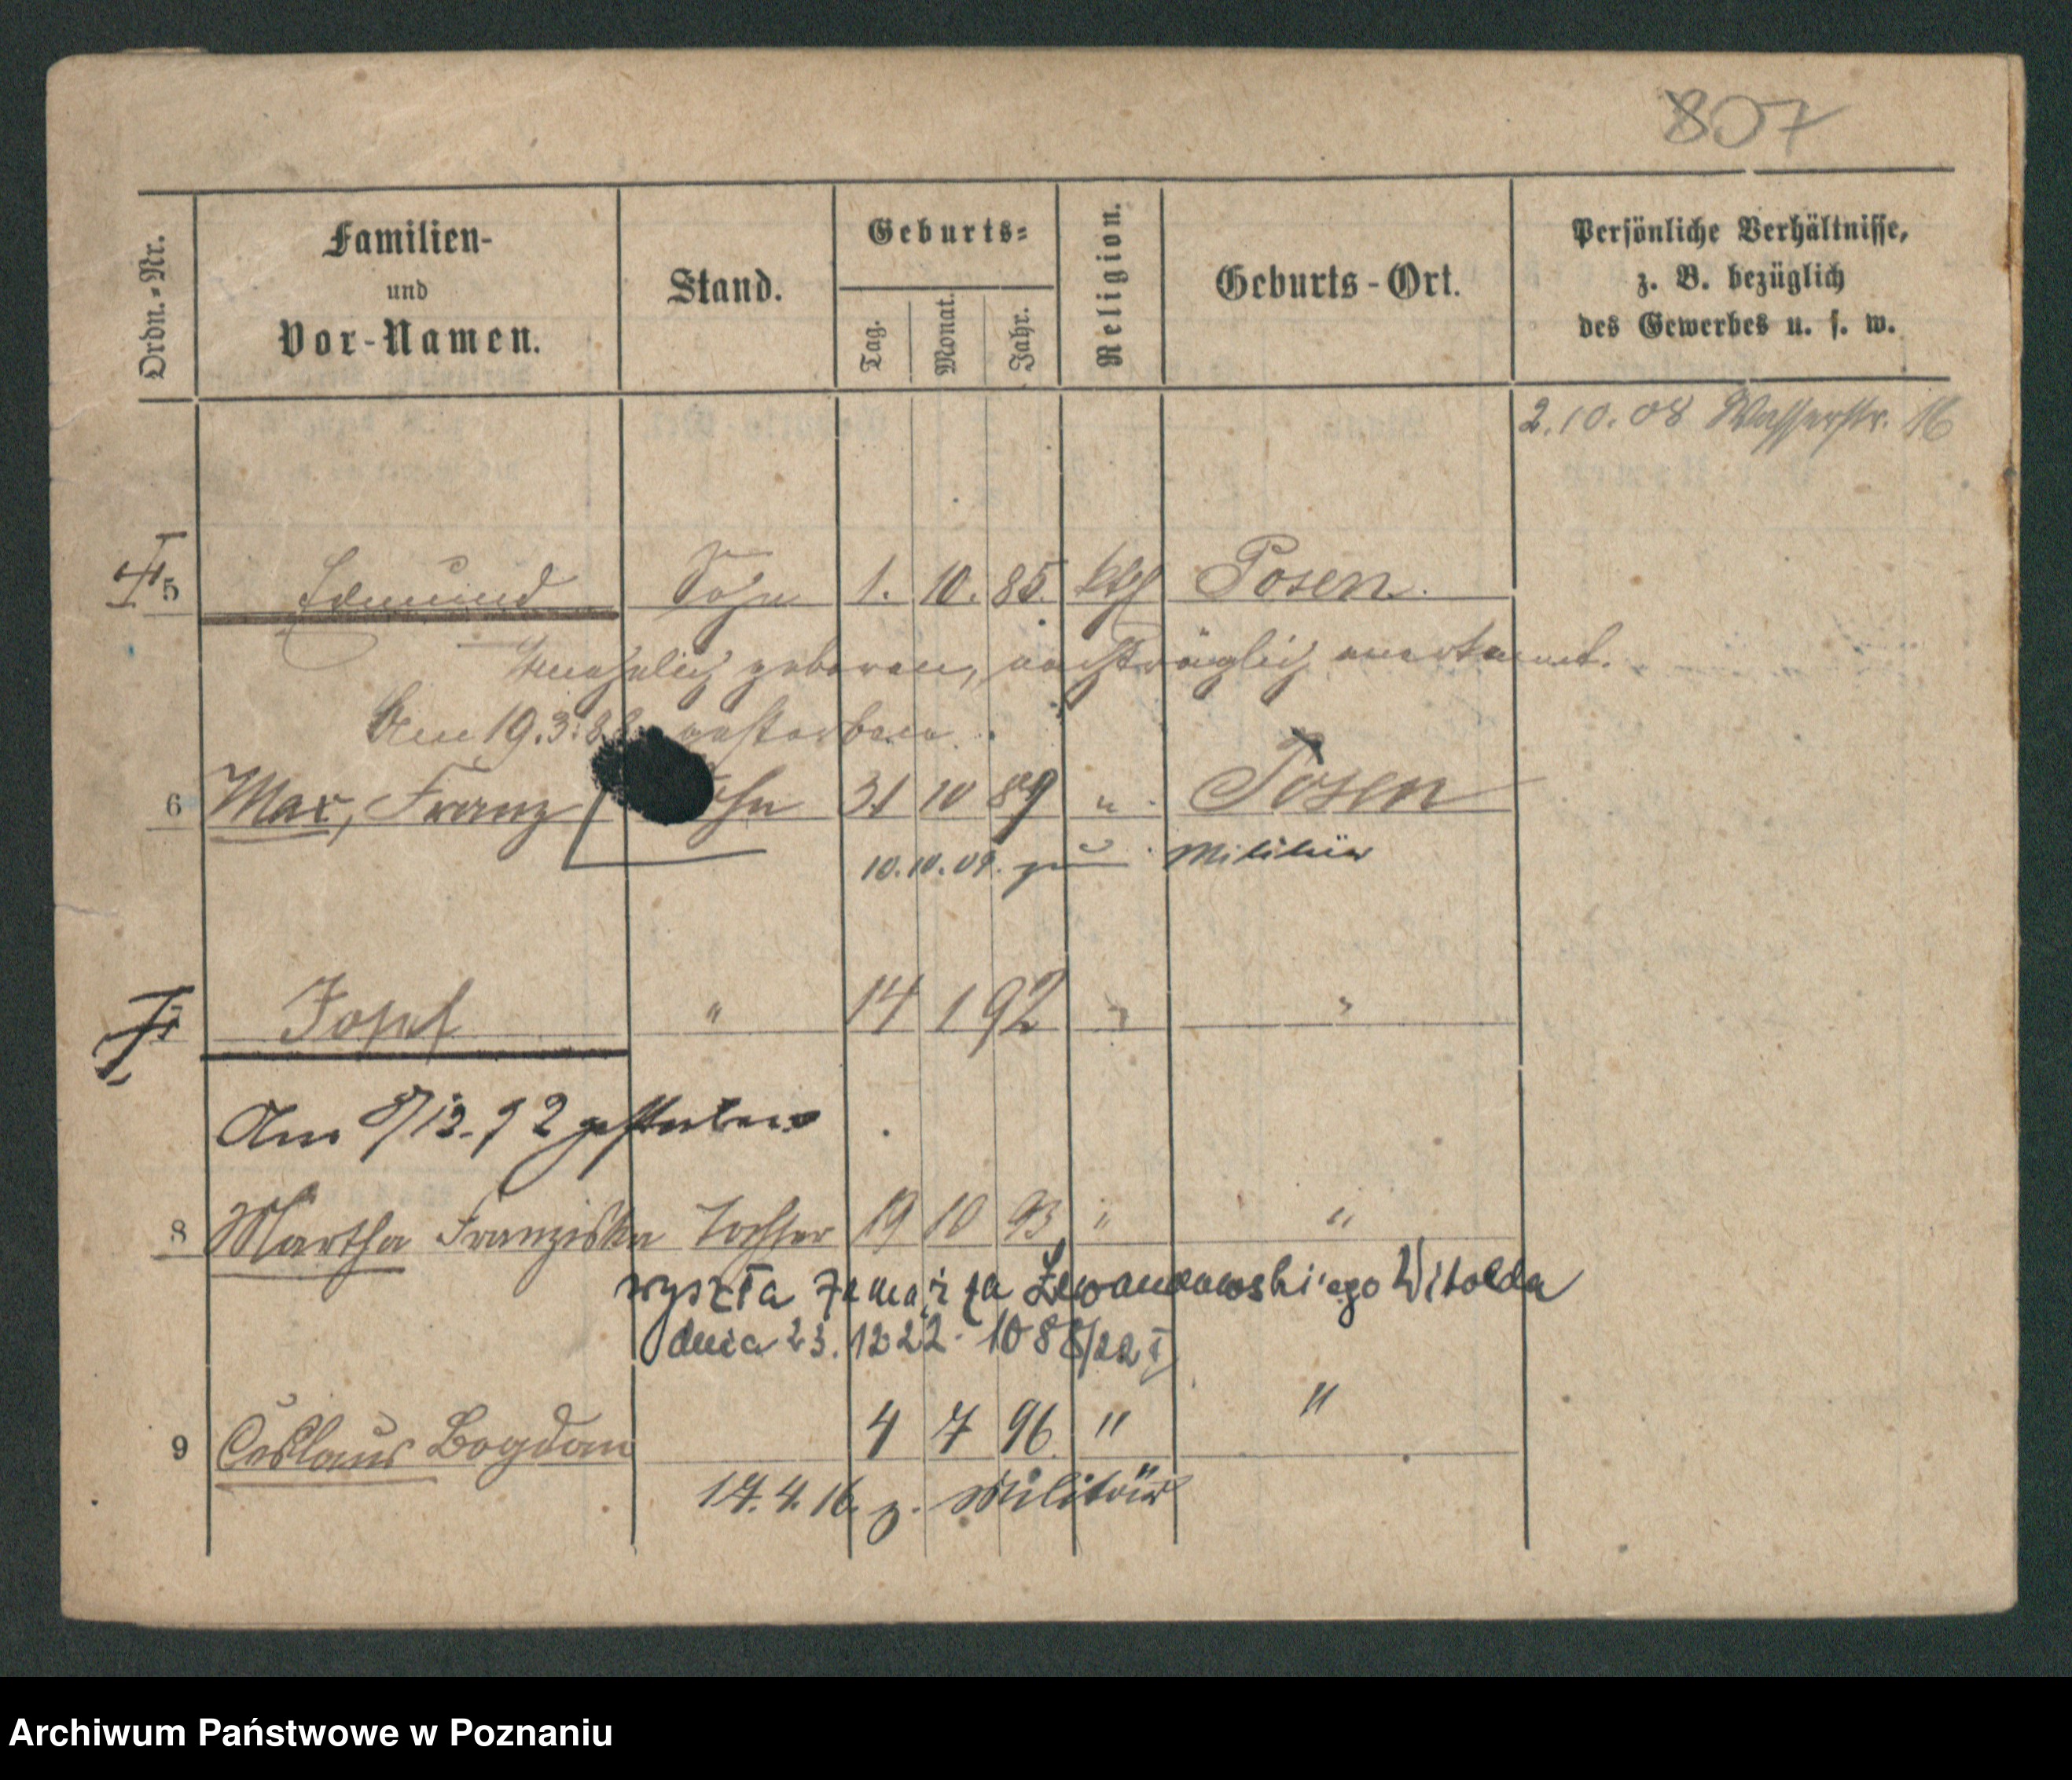 807
Ordn.-Nr.
Familien-
und
Vor-Namen.
Stand.
Geburts-
Tag.
Monat.
Jahr.
Religion.
Geburts-Ort.
Persönliche Verhältnisse,
z. B. bezüglich
des Gewerbes u. s. w.
2.10.08 Wasserstr. 16
5 Edmund Sohn 1. 10. 85. kth Posen.
Unehelich geboren, nachträglich anerkannt.
Am 19.3. gestorben.
6 Max, Franz Sohn 31 10 89 " Posen
10.10.09. zum Militär
Josef " 14 1 92 " "
Am 8/12.92 gestorben
8 Martha Franziska Tochter 19 10 93 " "
wyszła zamąż za Lewandowskiego Witolda
dnia 23.12.22. 1088/22 I
9 Ceslaus Bogdan 4 7 96 " "
17.4.16. z. Militär
Archiwum Państwowe w Poznaniu